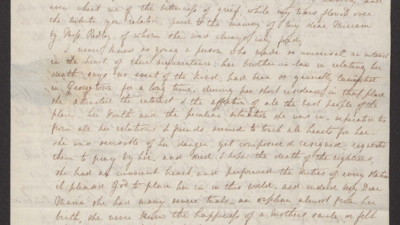 even what me of the bitterness of grief while my tears flowed over
the tribute you relation paid to the memory of my dear Miriam
by Miss Ridley, of whom she was always very fond,
I never knew so young a person who made so universal an interest
in the heart of their acquaintance; her brother in law in relating her
death, says no event of the kind, had been so generally lamented
in Georgetown for a long time, during her short residence in that place
she attracted the interest & the affection of all the best people of the
place, her Youth and the peculiar situation she was in, separated so
far from all her relations & friends seemed to touch all hearts for her
she was sensible of her danger, yet composed & resigned requested
them to pray by her, and died I hope the death of the righteous,
she had an innocent heart, and performed the duties of every station
it pleased God to place her in in this world, and indeed my Dear
Maria she had many severe trials, an orphan almost from her
birth, she never knew the happiness of a mothers smile or felt